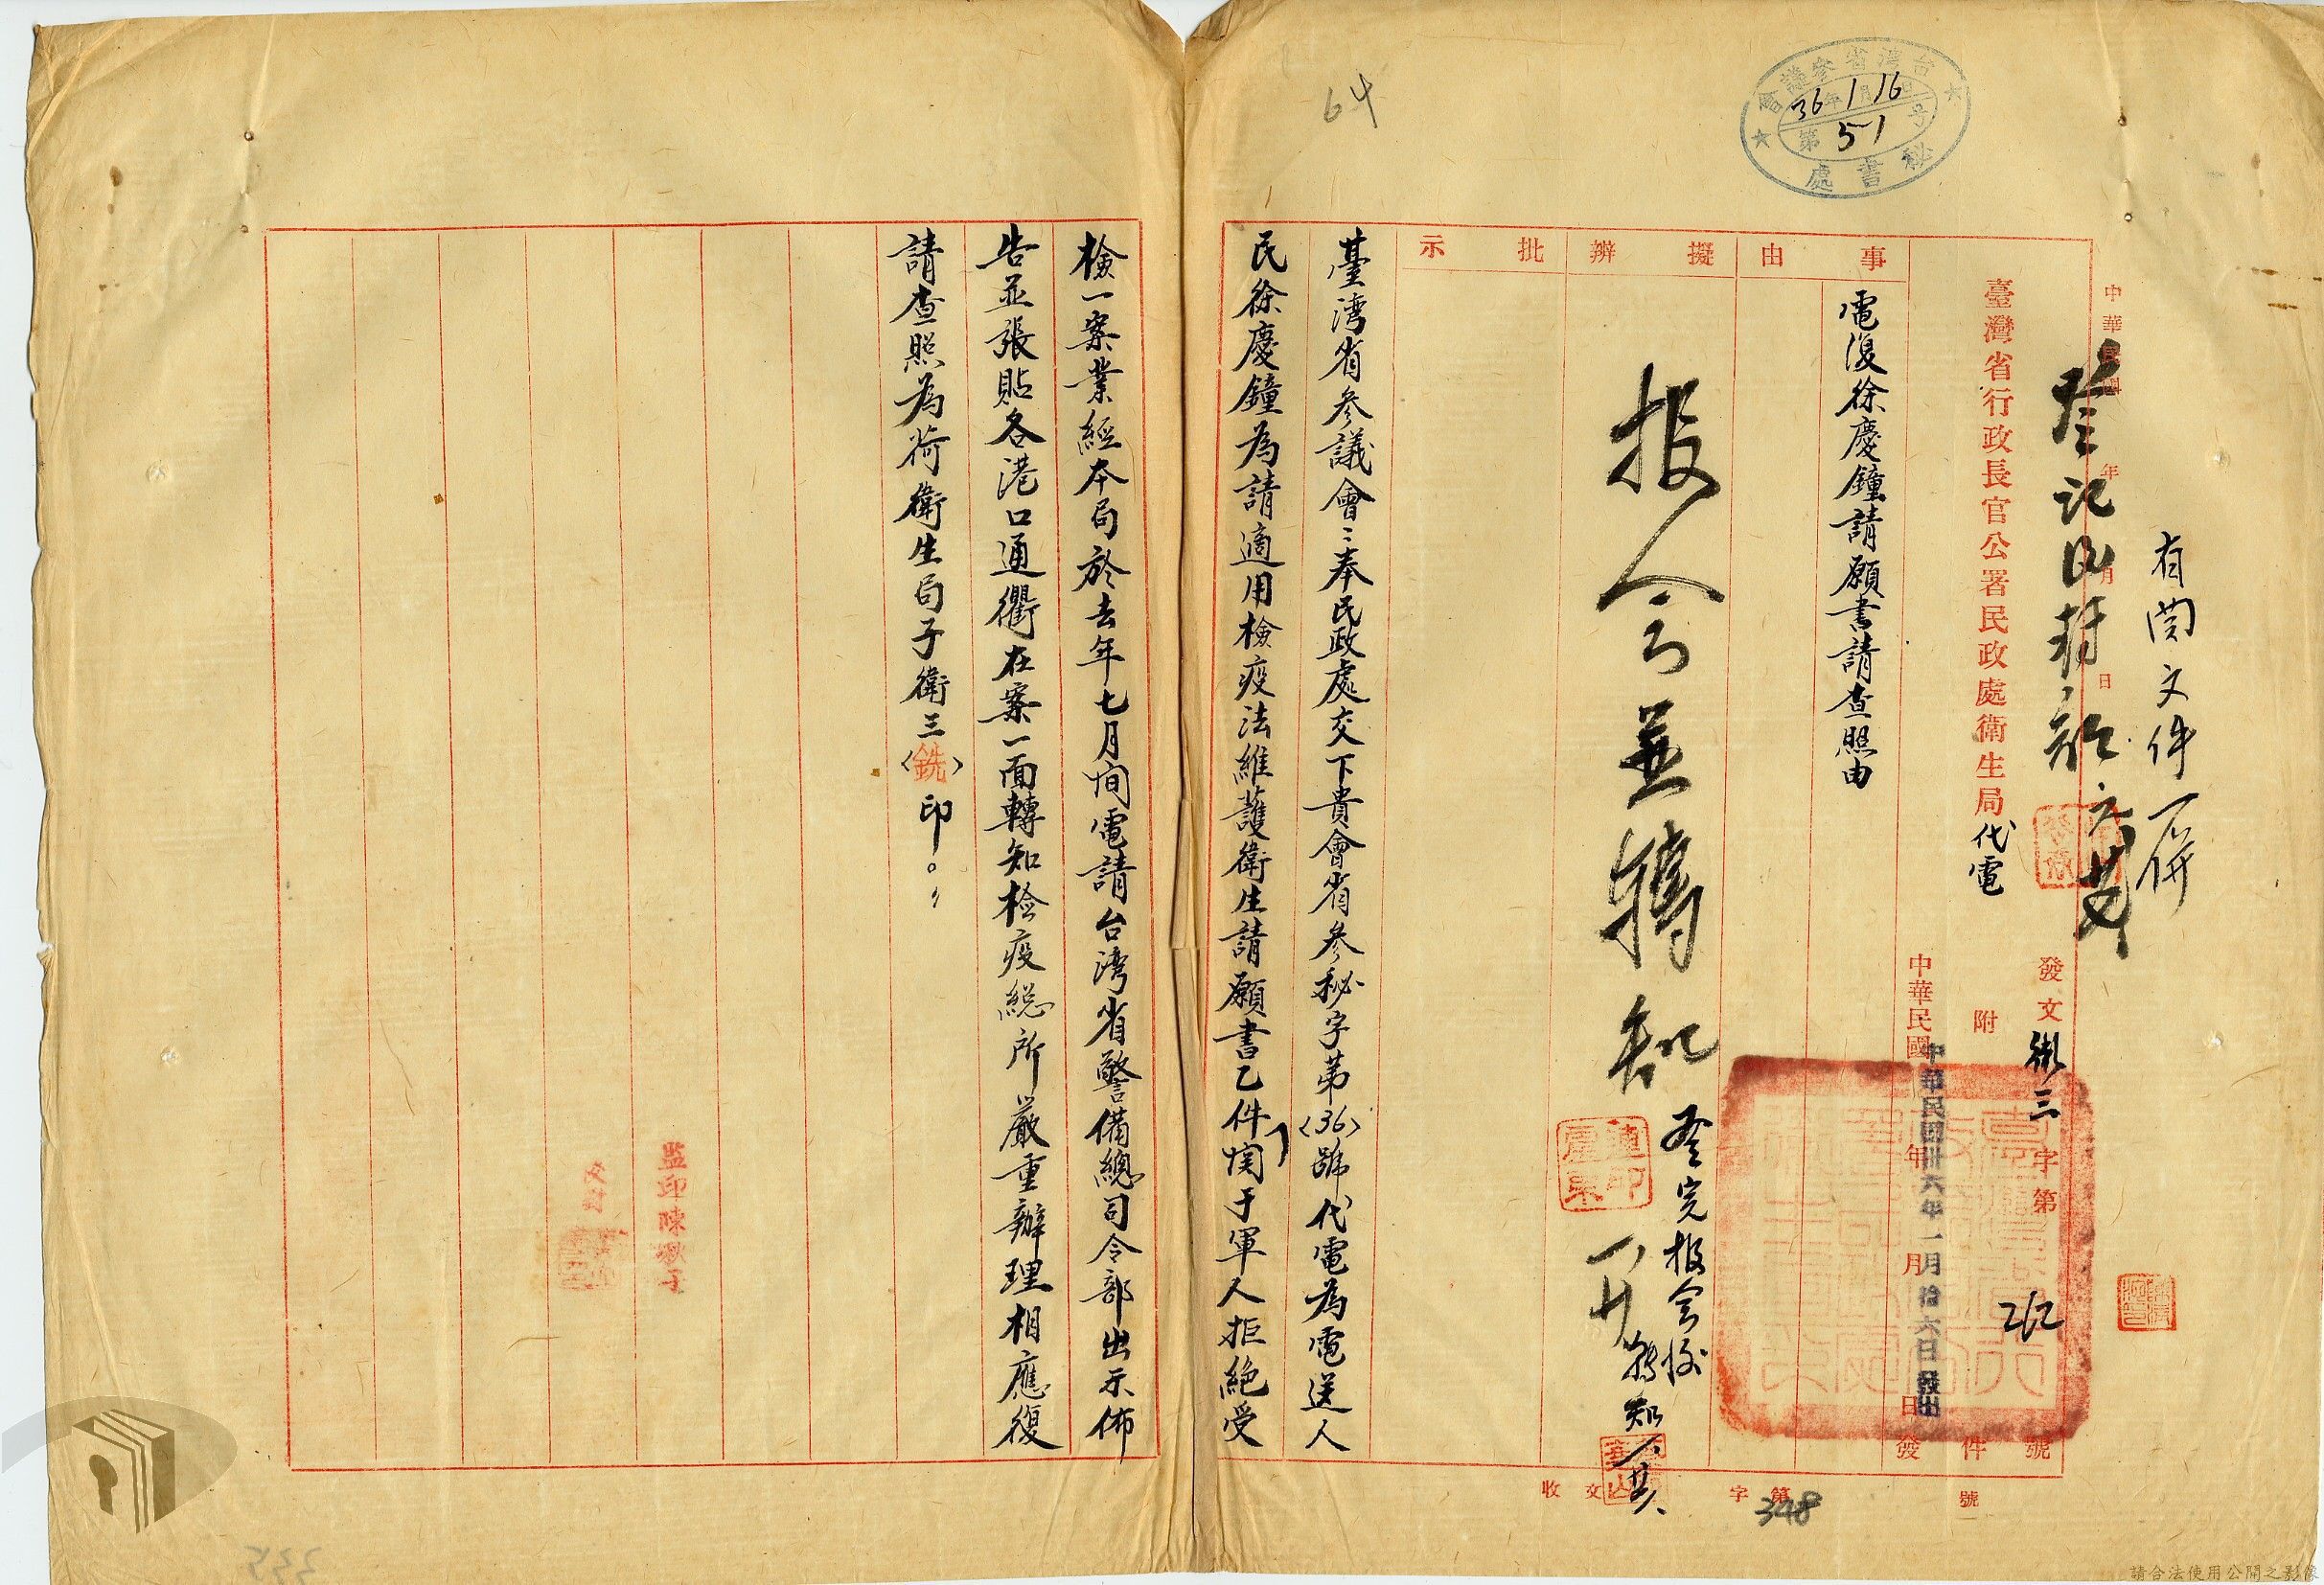 64
台湾省參議會
36年1月16
第51号
秘書處
中華民國 年 月 日
有関文件一併
臺灣省行政長官公署民政處衛生局代電
發文衛三字第 號
附 件
中華民國 年 月 日發
中華民國卅六年一月拾六日發出
事由
電復徐慶鐘請願書請查照由
擬辦
報会並轉知
批示
臺湾省參議會:奉民政處交下貴會省參秘字第(36)號代電為電送人
民徐慶鐘為請適用檢疫法維護衛生請願書乙件関于軍人拒絶受
檢一案業經本局於去年七月间電請台湾省警備總司令部出示佈
告並張貼各港口通衢在案一面轉知檢疫総所嚴重辦理相應復
請查照為荷衛生局子衛三(銑)印。
監印陳
校對
收文 字第348號
335
請合法使用公開之影像